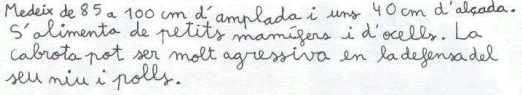 Medeix de 85 a 100 cm d'amplada i uns 40 cm d'alçada.
S'alimenta de petits mamífers i d'ocells. La
cabrota pot ser molt agressiva en la defensa del
seu niu i polls.